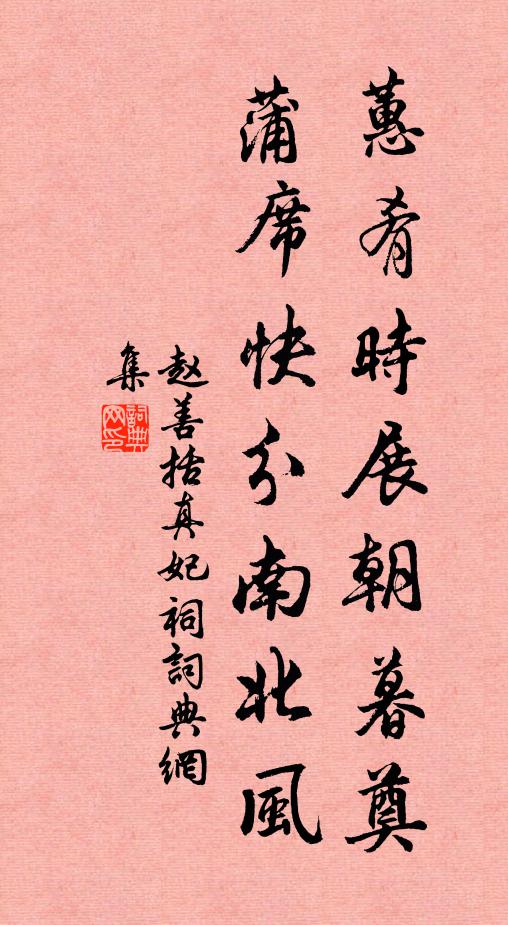 蕙肴時展朝暮奠
蒲席快分南北風
赵善括真妃祠詞典網
集
詞典
网印